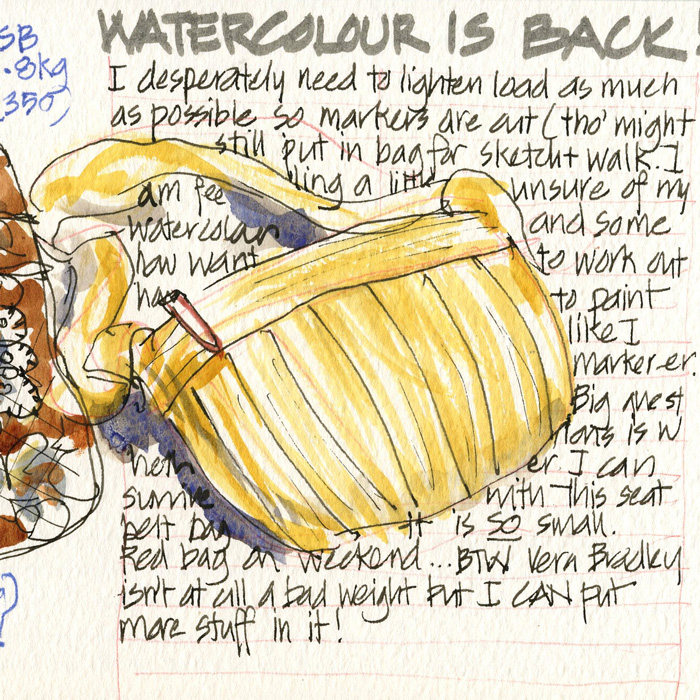 WATERCOLOUR IS BACK.
SB
.8kg
350)
I desperately need to lighten load as much
as possible so markers are out (tho' might
still put in bag for sketch + walk. I
am feeling a little unsure of my
watercolour and some
how want to work out
how to paint
like I
marker-er.
Big quest
is w
hether I can
survive with this seat
belt bag It is SO small.
Red bag on weekend... BTW Vera Bradley
isn't at all a bad weight but I CAN put
more stuff in it!